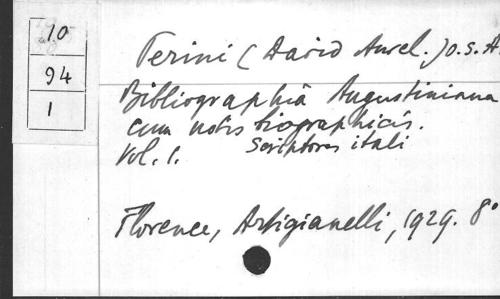 10
94
1
Perini (David Aurel.) O.S.A.
Bibliographia Augustiniana
cum notis biographicis.
Vol. 1. Scriptores itali
Florence, Artigianelli, 1929. 8°